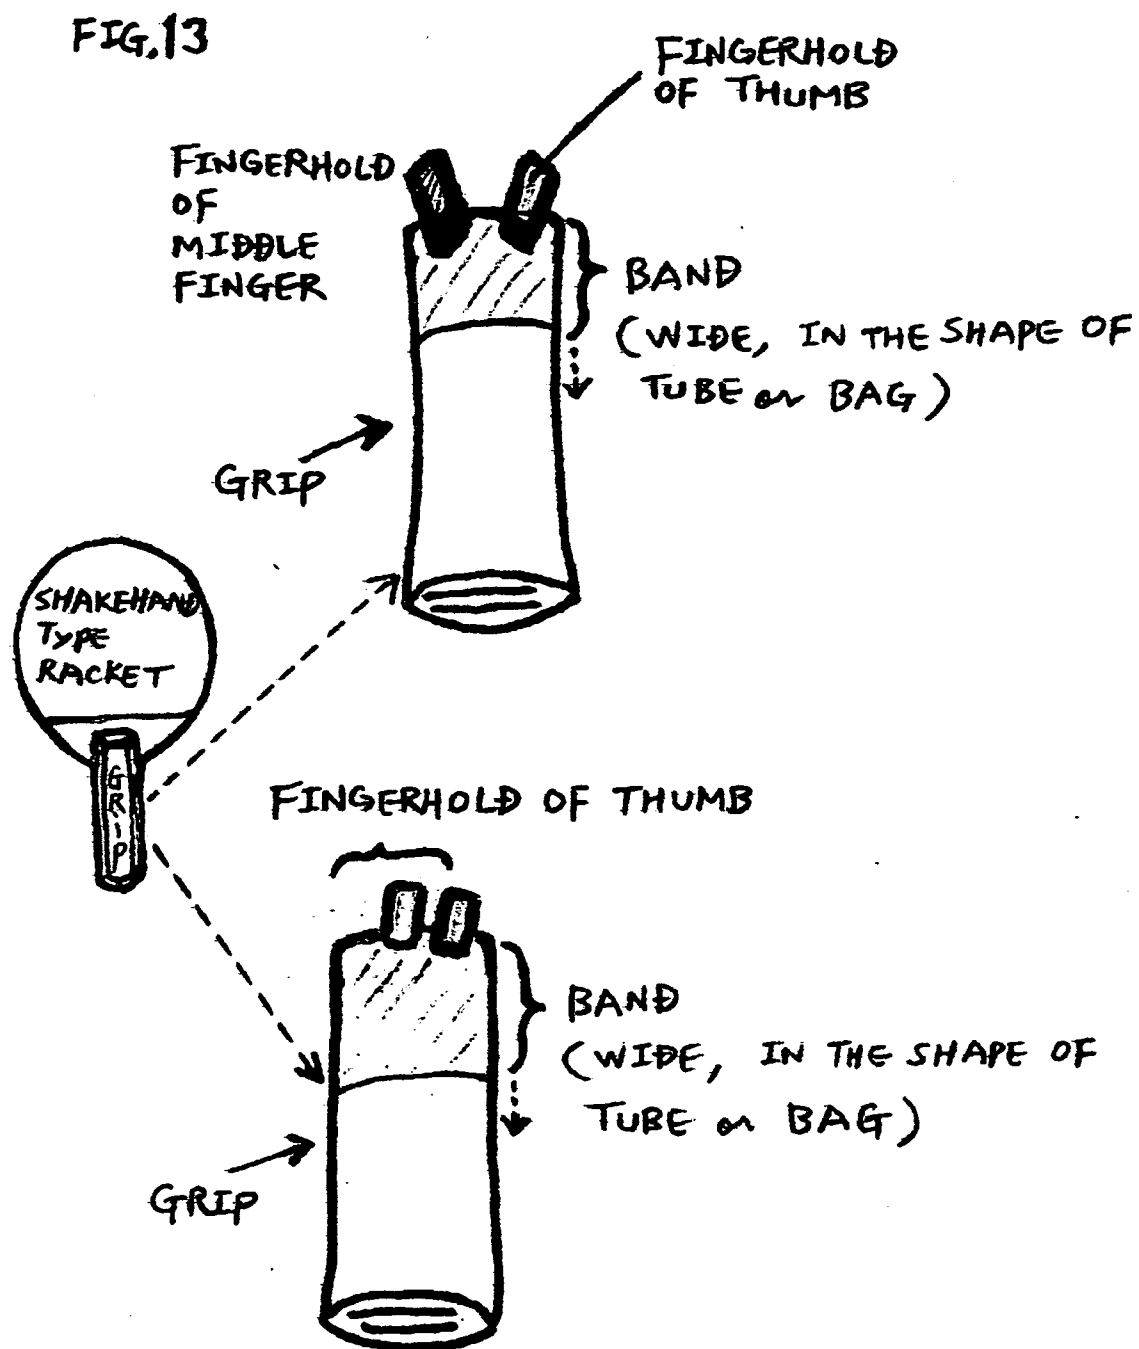 FIG.13
FINGERHOLD
OF THUMB
FINGERHOLD
OF
MIDDLE
FINGER
BAND
(WIDE, IN THE SHAPE OF
TUBE or BAG)
GRIP
SHAKEHAND
TYPE
RACKET
GRIP
FINGERHOLD OF THUMB
BAND
(WIDE, IN THE SHAPE OF
TUBE or BAG)
GRIP